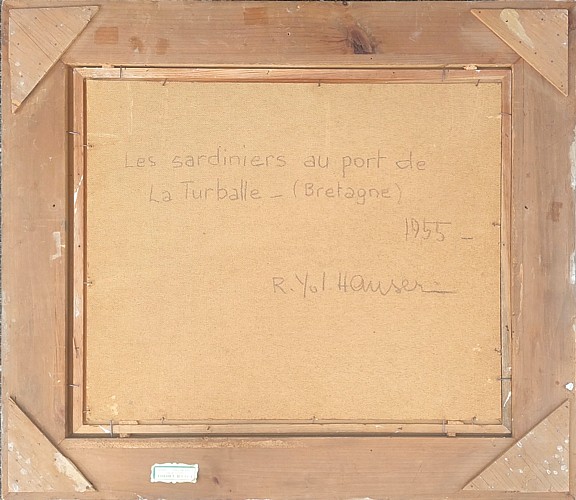 Les sardiniers au port de
La Turballe - (Bretagne)
1955 -
R. Yol. Hauser